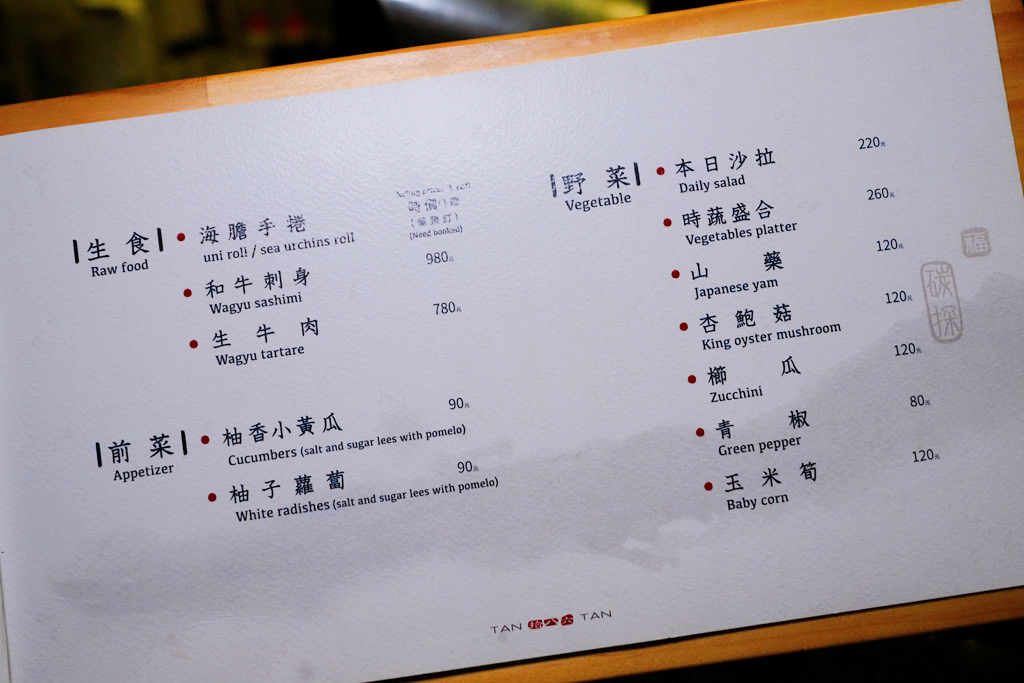 生食
Raw food
海膽手捲
uni roll / sea urchins roll
時價/1捲
(需預訂)
(Need booked)
和牛刺身
Wagyu sashimi
980元
生牛肉
Wagyu tartare
780元
前菜
Appetizer
柚香小黃瓜
Cucumbers (salt and sugar lees with pomelo)
90元
柚子蘿蔔
White radishes (salt and sugar lees with pomelo)
90元
野菜
Vegetable
本日沙拉
Daily salad
220元
時蔬盛合
Vegetables platter
260元
山藥
Japanese yam
120元
杏鮑菇
King oyster mushroom
120元
櫛瓜
Zucchini
120元
青椒
Green pepper
80元
玉米筍
Baby corn
120元
福
碳探
TAN TAN